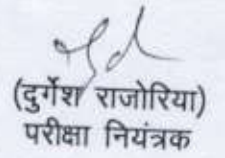 (दुर्गेश राजोरिया)
परीक्षा नियंत्रक